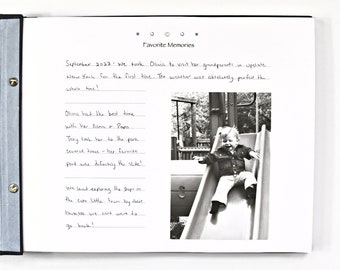 Favorite Memories
September 2022 - We took Olivia to visit her grandparents in upstate
New York for the first time. The weather was absolutely perfect the
whole time!
Olivia had the best time
with her Nana & Papa.
They took her to the park
several times - her favorite
part was definitely the slide!
We loved exploring the shops in
the cute little town by their
house we can't wait to
go back!